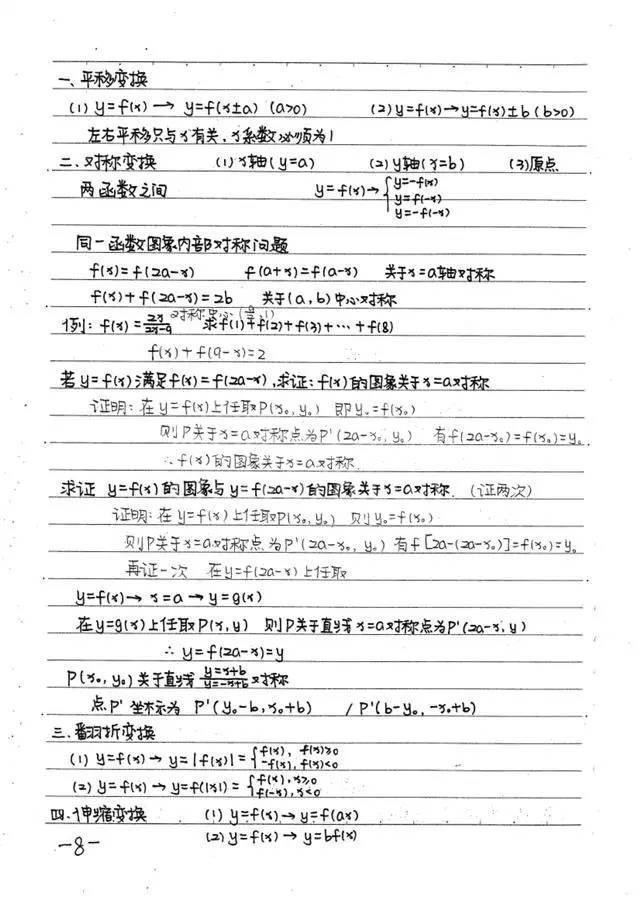 一、平移变换
(1) y=f(x) → y=f(x±a) (a>0) (2) y=f(x)→y=f(x)±b (b>0)
左右平移只与x有关，x系数必须为1
二、对称变换 (1) x轴(y=a) (2) y轴(x=b) (3) 原点
两函数之间 y=f(x)→{y=-f(x)
y=f(-x)
y=-f(-x)
同一函数图象内部对称问题
f(x)=f(2a-x) f(a+x)=f(a-x) 关于x=a轴对称
f(x)+f(2a-x)=2b 关于(a,b)中心对称
对称中心(9/2,1)
例：f(x)=2x/(2x-9) 求f(1)+f(2)+f(3)+…+f(8)
f(x)+f(9-x)=2
若y=f(x)满足f(x)=f(2a-x),求证：f(x)的图象关于x=a对称
证明：在y=f(x)上任取P(x₀,y₀) 即y₀=f(x₀)
则P关于x=a对称点为P'(2a-x₀,y₀) 有f(2a-x₀)=f(x₀)=y₀
∴f(x)的图象关于x=a对称
求证 y=f(x)的图象与y=f(2a-x)的图象关于x=a对称. (证两次)
证明：在y=f(x)上任取P(x₀,y₀) 则y₀=f(x₀)
则P关于x=a对称点为P'(2a-x₀,y₀) 有f[2a-(2a-x₀)]=f(x₀)=y₀
再证一次 在y=f(2a-x)上任取
y=f(x)→x=a→y=g(x)
在y=g(x)上任取P(x,y) 则P关于直线x=a对称点为P'(2a-x,y)
∴ y=f(2a-x)=y
P(x₀,y₀)关于直线 y=x+b / y=-x+b 对称
点P'坐标为 P'(y₀-b,x₀+b) / P'(b-y₀,-x₀+b)
三、翻折变换
(1) y=f(x)→y=|f(x)|={f(x), f(x)≥0
-f(x), f(x)<0
(2) y=f(x)→y=f(|x|)={f(x), x≥0
f(-x), x<0
四、伸缩变换 (1) y=f(x)→y=f(ax)
(2) y=f(x)→y=bf(x)
-8-